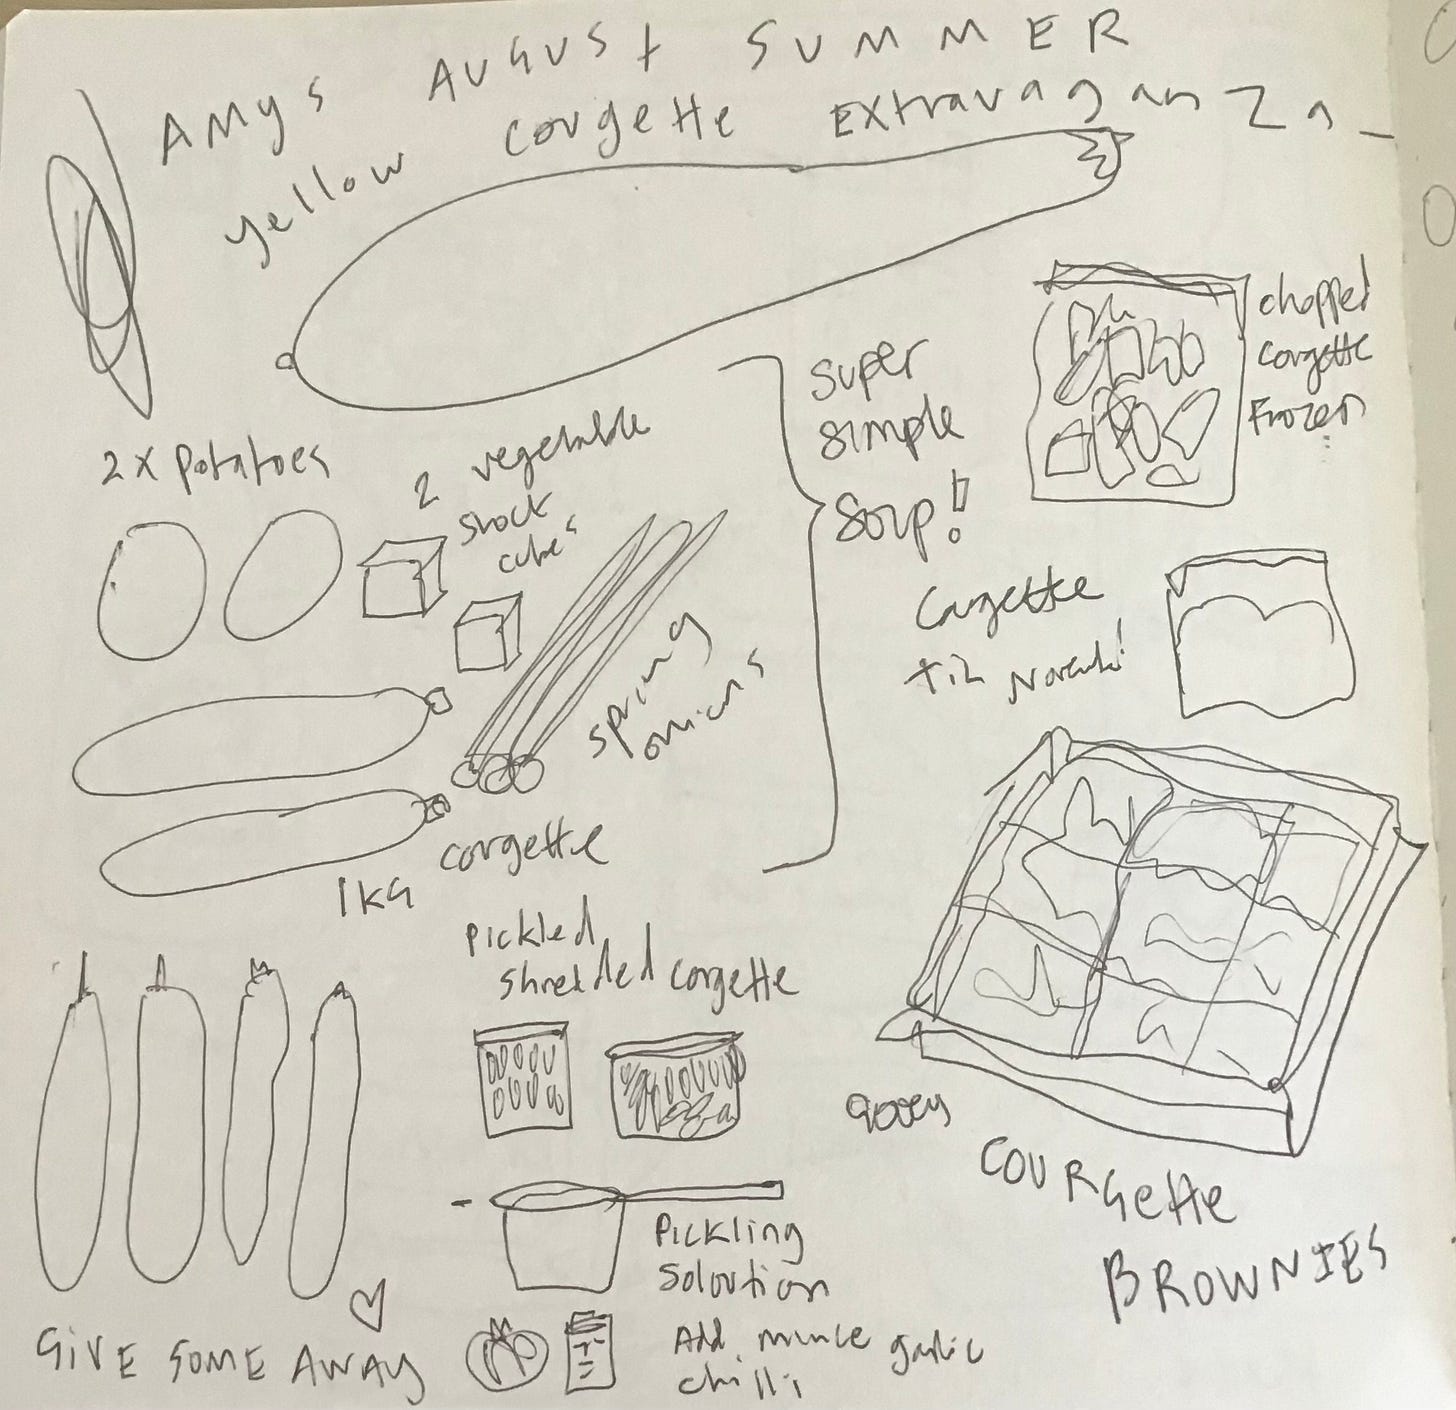 AMYS AUGUST SUMMER
yellow corgette Extravaganza
2 x potatoes
2 vegetable
stock
cubes
spring
onions
1KG corgette
super
simple
Soup!!
chopped
corgette
Frozen
Corgette
til
pickled
shredded corgette
Pickling
Soloution
Add mince garlic
chilli
GIVE SOME AWAY
gooey
COURGETTE
BROWNIES